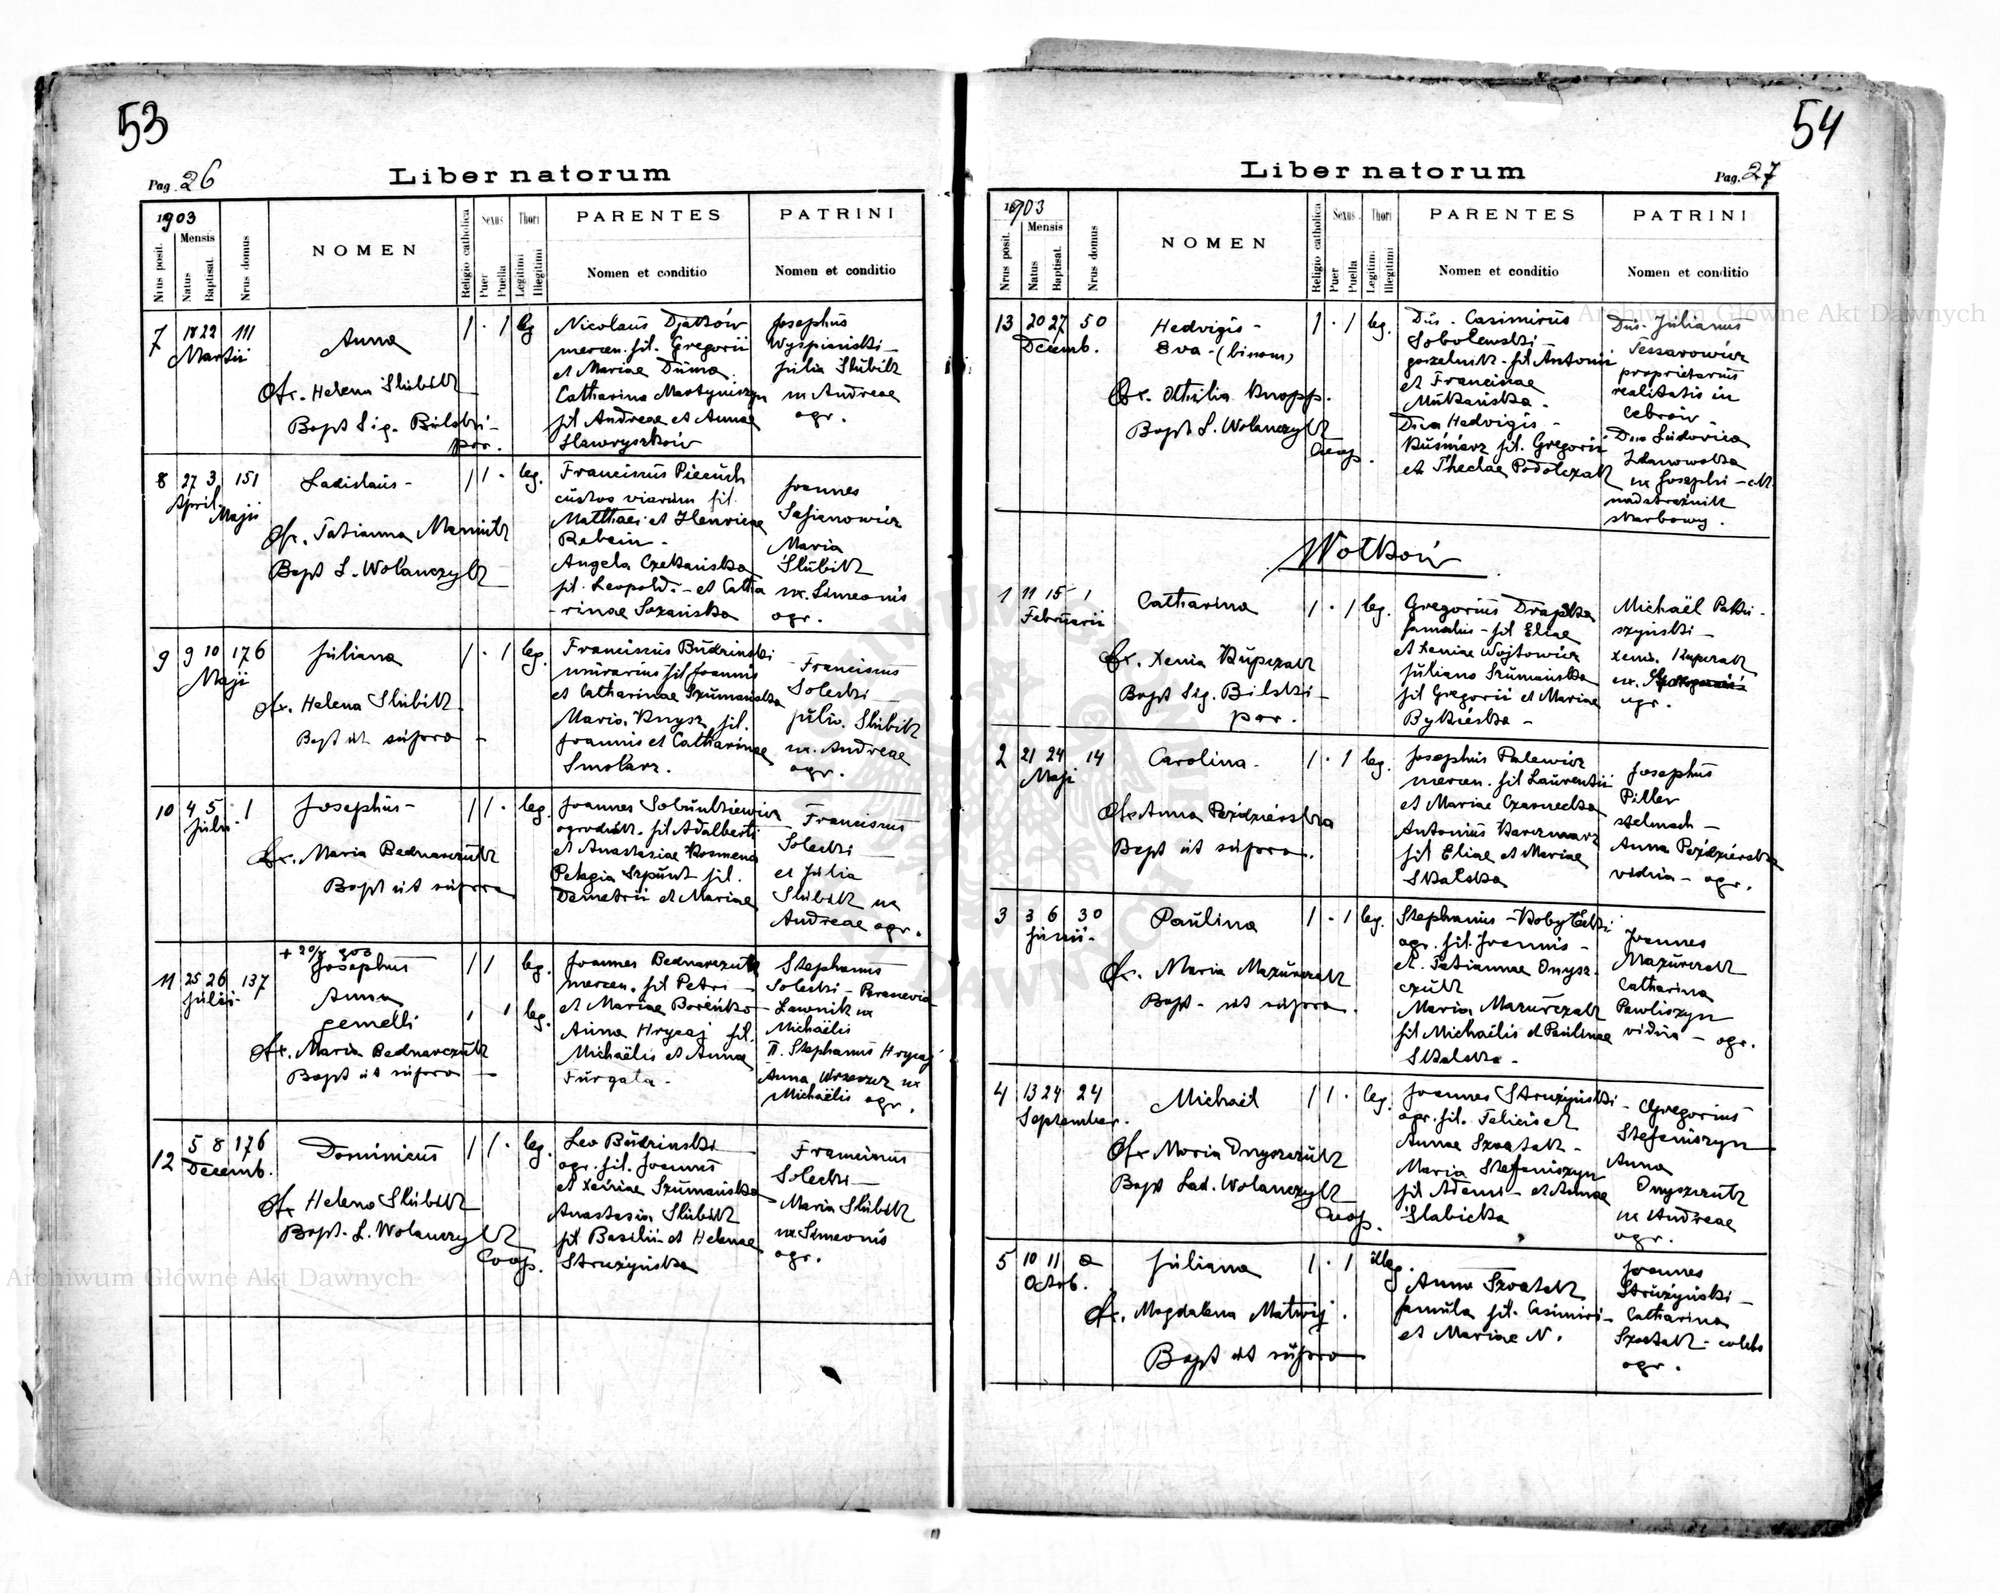 53
Pag. 26
Liber natorum
1903
Nrus posit.
Mensis
Natus
Baptisat.
Nrus domus
NOMEN
Religio catholica
Sexus
Puer
Puella
Thori
Legitimi
Illegitimi
PARENTES
Nomen et conditio
PATRINI
Nomen et conditio
7
18 22
Martii
111
Anna
Obs. Helena Slubik
Bapt Sig. Bilski
par.
1 · 1 leg
Nicolaus Djaków
mercen. fil. Gregorii
et Mariae Duma
Catharina Martyniszyn
fil Andreae et Annae
Hawryszków
Josephus
Wyspianski
Julia Slubik
ux Andreae
agr.
8
27 3
April. Maji
151
Ladislaus -
Obs. Tatianna
Bapt L. Wolanczyk
1 1 · leg.
Franciscus Pieczuch
custos viarum fil.
Matthaei et Henricae
Rebein -
Angela Czekańska
fil. Leopoldi - et Catha
- rinae Sozańska
Joannes
Safianowicz
Maria
Slubik
ux. Simeonis
agr.
9
9 10
Maji
176
Juliana
Obs. Helena Slubik
Bapt ut supra -
1 · 1 leg.
Franciscus Budzinski
murarius fil Joannis
et Catharinae Szumańska
Maria Knysz fil.
Joannis et Catharinae
Smolarz.
Franciscus
Solecki
Julia. Slubik
ux. Andreae
agr.
10
4 5
Julii
1
Josephus -
Obs. Maria Bednarczuk
Bapt ut supra
1 1 · leg.
Joannes Sobunkiewicz
ogrodnik. fil Adalberti
et Anastasiae Kosmena
Pelagia Szpunt fil.
Demetrii et Mariae
Franciscus
Solecki
et Julia
Slubik ux
Andreae agr.
11
25 26
Julii
137
Josephus
Anna
gemelli
Obs. Maria Bednarczuk
Bapt ut supra
1 1 leg.
1 1 leg.
Joannes Bednarczuk
mercen. fil Petri
et Mariae Boreńko
Anna Hrycaj fil.
Michaëlis et Annae
Furgala.
Stephanus
Solecki - Paranevia
Lawnik ux
Michaëlis
II. Stephanus Hrycaj
Anna Wrzeszcz ux
Michaëlis agr.
12
5 8
Decemb.
176
Dominicus
Obs Helena Slubik
Bapt. L. Wolanczyk
Coop.
1 1 · leg.
Leo Budzinski
agr. fil. Joannis
et Xeniae Szumańska
Anastasia Slubik
fil Basilii et Helenae
Struzyńska
Franciscus
Solecki -
Maria Slubik
ux Simeonis
agr.
54
Liber natorum
Pag. 27
1903
Nrus posit.
Mensis
Natus
Baptisat.
Nrus domus
NOMEN
Religio catholica
Sexus
Puer
Puella
Thori
Legitim.
Illegitimi
PARENTES
Nomen et conditio
PATRINI
Nomen et conditio
13
20 27
Decemb.
50
Hedvigis -
Eva - (binom)
Obs. Othilia Knopp.
Bapt L. Wolanczyk
Coop.
1 · 1 leg.
Dus. Casimirus
Sobolewski -
gorzelnik - fil Antonii
et Franciscae
Mukańska -
Dna Hedvigis -
Kuśnierz fil. Gregorii
et Theclae Podolczak
Dus. Julianus
Tessarowicz
proprietarius
realitatis in
Cebrów -
Dna Ludovica
Zdanowska
ux Josephi
nadstrażnik
skarbowy.
Wołków
1
11 15
Februarii
1
Catharina
Obs. Xenia Kupczak
Bapt Sig. Bilski
par.
1 · 1 leg.
Gregorius Drapka
famulus - fil Eliae
et Xeniae Wojtowicz
Juliana Szumańska
fil Gregorii et Mariae
Bykieska -
Michaël Paku -
szyński -
xenia. Kupczak
ux.
agr.
2
21 24
Maji
14
Carolina -
Obs Anna Paździerska
Bapt ut supra.
1 · 1 leg.
Josephus Palewicz
mercen. fil Laurentii
et Mariae Czarnecka
Antonius Karczmarz
fil Eliae et Mariae
Skalska
Josephus
Piller
stelmach -
Anna Paździerska
vidua - agr.
3
3 6
Junii -
30
Paulina
Obs. Maria Mazurczak
Bapt - ut supra.
1 · 1 leg.
Stephanus - Kobylecki
agr. fil. Joannis -
et. Tatiannae Onysz
czuk
Maria Mazurczak
fil Michaëlis et Paulinae
Skalska -
Joannes
Mazurczak
Catharina
Pawliszyn
vidua - agr.
4
13 24
September.
24
Michaël
Obs Maria Onyszczuk
Bapt Lad. Wolanczyk
Coop.
1 1 · leg.
Joannes Struzyński
agr. fil. Felicis et
Annae Szostak -
Maria Stefaniszyn
fil Adami - et Annae
Slabicka
Gregorius
Stefaniszyn
Anna
Onyszczuk
ux Andreae
agr.
5
10 11
Octob.
2
Juliana
Obs. Magdalena Matwij.
Bapt ut supra
1 · 1 illeg.
Anna Szostak
famula fil. Casimiri
et Mariae N.
Joannes
Struzyński -
Catharina
Szostak - coelebs
agr.
Archiwum Główne Akt Dawnych
Archiwum Główne Akt Dawnych